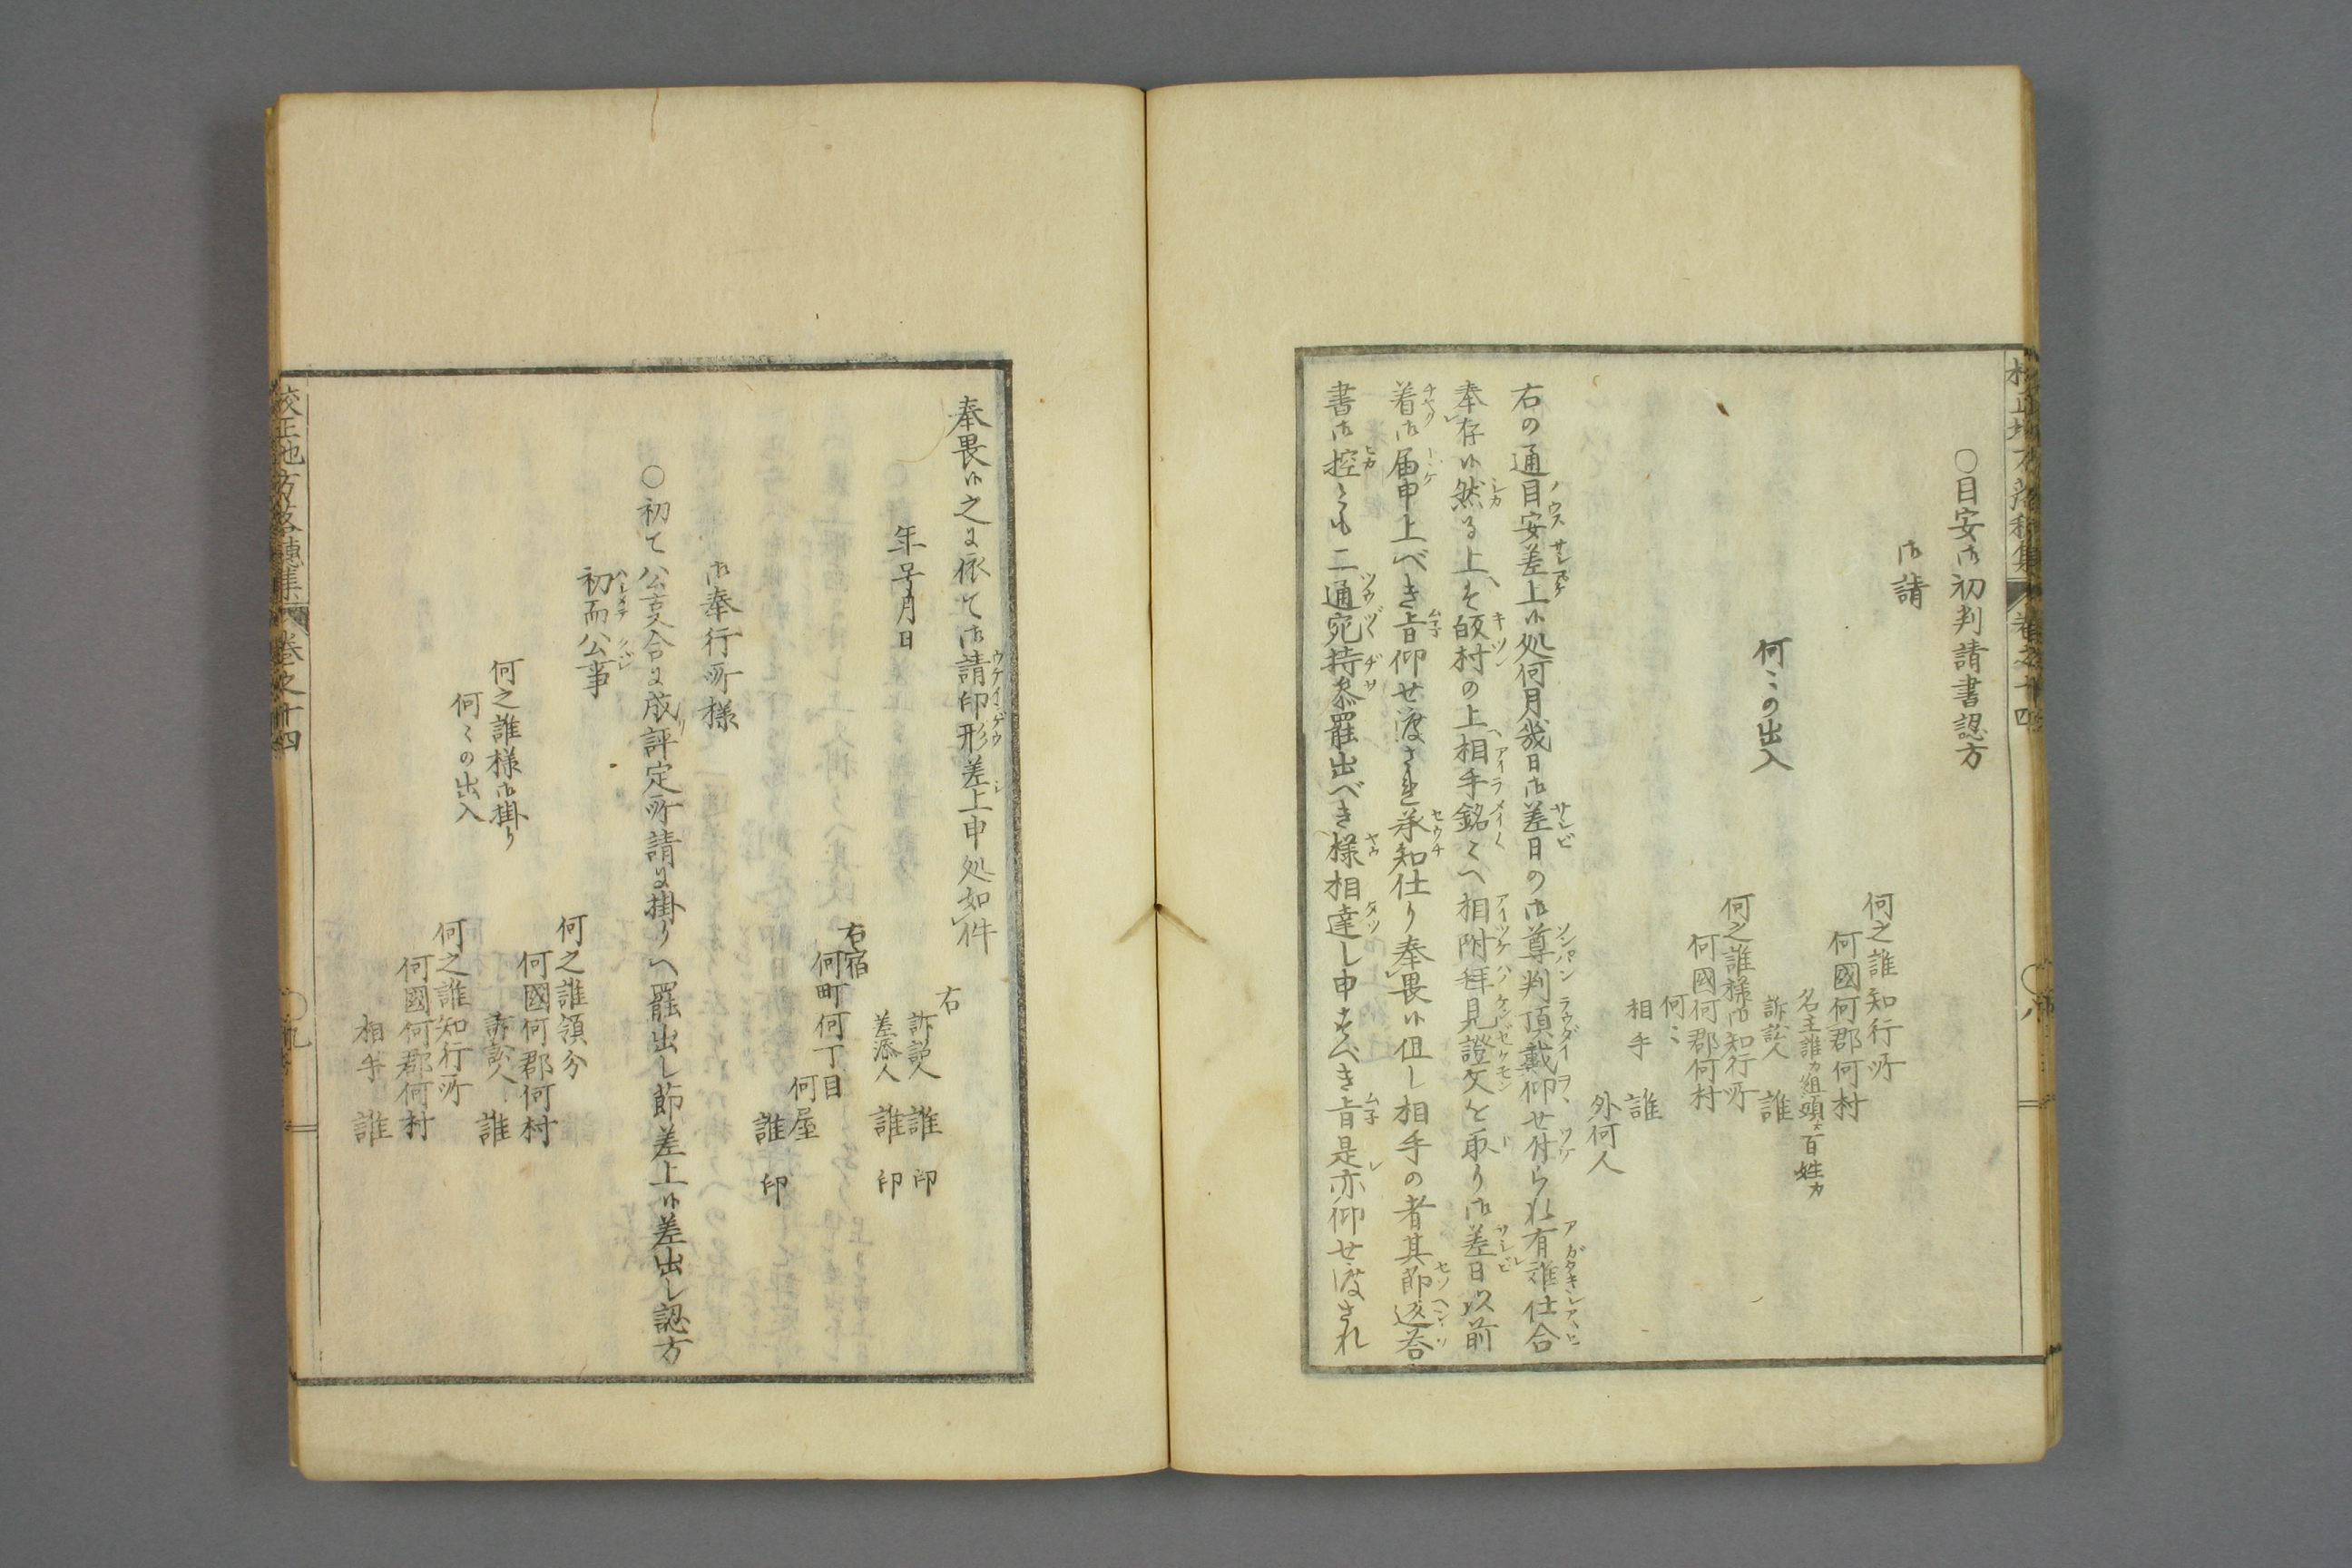 ○目安御初判請書認方
御請
何之誰知行所
何國何郡何村
名主誰カ組頭カ百姓カ
訴訟人 誰
何〻の出入
何之誰様御知行所
何國何郡何村
何〻
相手 誰
外何人
右の通目安差上候処何月幾日御差日の御尊判頂戴仰せ付られ有難仕合
奉存候然る上ハ皈村の上相手銘〻へ相附拝見證文を取り御差日以前
着御届申上べき旨仰せ渡され承知仕り奉畏候但し相手の者其節返答
書御控とも二通宛持参罷出べき様相達し申すべき旨是亦仰せ渡され
奉畏候之に依て御請印形差上申処如件
年号月日
右
訴訟人 誰 印
差添人 誰 印
右宿
何町何丁目
何屋
誰 印
御奉行所様
○初て公事合に成評定所請に掛りへ罷出し節差上候差出し認方
初而公事
何之誰領分
何國何郡何村
訴訟人 誰
何之誰様御掛り
何〻の出入
何之誰知行所
何國何郡何村
相手 誰
校正地方落穂集 巻之十四